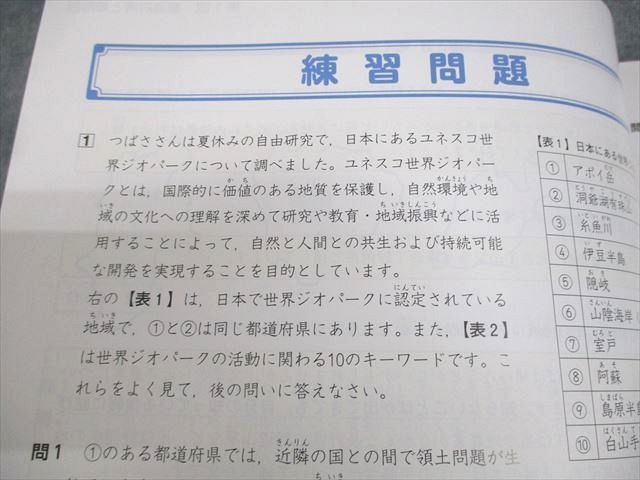 練習問題
1 つばささんは夏休みの自由研究で，日本にあるユネスコ世
界ジオパークについて調べました。ユネスコ世界ジオパー
クとは，国際的に価値のある地質を保護し，自然環境や地
域の文化への理解を深めて研究や教育・地域振興などに活
用することによって，自然と人間との共生および持続可能
な開発を実現することを目的としています。
右の【表1】は，日本で世界ジオパークに認定されている
地域で，①と②は同じ都道府県にあります。また，【表2】
は世界ジオパークの活動に関わる10のキーワードです。こ
れらをよく見て，後の問いに答えなさい。
問1 ①のある都道府県では，近隣の国との間で領土問題が生
【表1】日本にある世界
① アポイ岳
② 洞爺湖有珠山
③ 糸魚川
④ 伊豆半島
⑤ 隠岐
⑥ 山陰海岸
⑦ 室戸
⑧ 阿蘇
⑨ 島原半島
⑩ 白山手